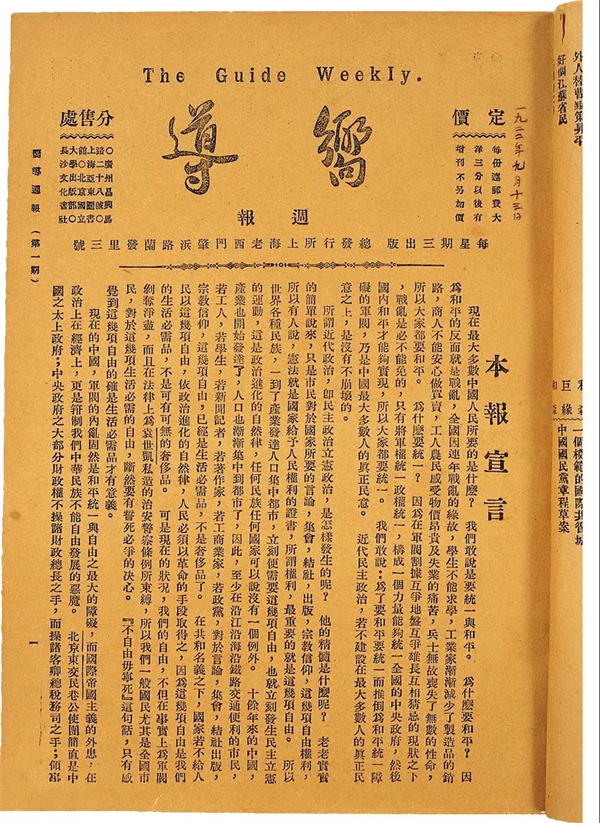 The Guide Weekly.
嚮導
週報
一九二二年九月十三日
定價
每份連郵費大
洋三分以後有
增刊不另加價
分售處
○廣州昌興馬
路二十八號○
上海亞東圖書
館○北京國立
大學出版部○
長沙文化書社
每星期三出版 總發行所上海老西門肇浜路蘭發里三號
本報宣言
現在最大多數中國人民所要的是什麼? 我們敢說是要統一與和平。 爲什麼要和平? 因
爲和平的反面就是戰亂,全國因連年戰亂的緣故,學生不能求學,工業家漸漸減少了製造品的銷
路,商人不能安心做買賣,工人農民感受物價昂貴及失業的痛苦,兵士無故喪失了無數的性命,
所以大家都要和平。 爲什麼要統一? 因爲在軍閥割據互爭地盤互爭雄長互相猜忌的現狀之下
,戰亂是必不能免的,只有將軍權統一政權統一,構成一個力量能夠統一全國的中央政府,然後
國內和平才能夠實現,所以大家都要統一。 我們敢說:爲了要和平要統一而推倒爲和平統一障
礙的軍閥,乃是中國最大多數人的眞正民意。 近代民主政治,若不建設在最大多數人的眞正民
意之上,是沒有不崩壞的。
所謂近代政治,卽民主政治立憲政治,是怎樣發生的呢? 他的精髓是什麼呢? 老老實實
的簡單說來,只是市民對於國家所要的言論,集會,結社,出版,宗敎信仰,這幾項自由權利,
所以有人說,憲法就是國家給予人民權利的證書,所謂權利,最重要的就是這幾項自由。 所以
世界各種民族,一到了產業發達人口集中都市,立刻便需要這幾項自由,也就立刻發生民主立憲
的運動,這是政治進化的自然律,任何民族任何國家可以說沒有一個例外。 十餘年來的中國,
產業也開始發達了,人口也漸漸集中到都市了,因此,至少在沿江沿海沿鐵路交通便利的市民,
若工人,若學生,若新聞記者,若著作家,若工商業家,若政黨,對於言論,集會,結社,出版,
宗敎信仰,這幾項自由,已經是生活必需品,不是奢侈品了。 在共和名義之下,國家若不給人
民以這幾項自由,依政治進化的自然律,人民必須以革命的手段取得之,因爲這幾項自由是我們
的生活必需品,不是可有可無的奢侈品。 可是現在的狀況,我們的自由,不但在事實上爲軍閥
剝奪淨盡,而且在法律上爲袁世凱私造的治安警察條例所束縛,所以我們一般國民尤其是全國市
民,對於這幾項生活必需的自由,斷然要有誓死必爭的決心。『不自由毋寧死』這句話,只有感
覺到這幾項自由的確是生活必需品才有意義。
現在的中國,軍閥的內亂固然是和平統一與自由之最大的障礙,而國際帝國主義的外患,在
政治上在經濟上,更是箝制我們中華民族不能自由發展的惡魔。 北京東交民巷公使團簡直是中
國之太上政府;中央政府之大部分財政權不操諸財政總長之手,而操諸客卿總稅務司之手;領事
嚮導週報 (第一期)
一
一個模範的國際共管城
中國國民黨章程草案